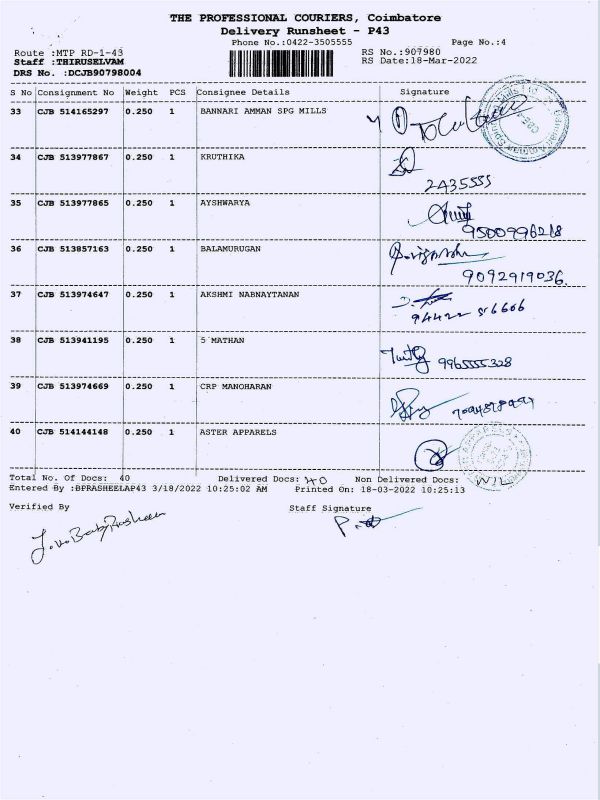 THE PROFESSIONAL COURIERS, Coimbatore
Delivery Runsheet - P43
Phone No.:0422-3505555 Page No.:4
Route :MTP RD-1-43 RS No.:907980
Staff :THIRUSELVAM RS Date:18-Mar-2022
DRS No. :DCJB90798004
S No Consignment No Weight PCS Consignee Details Signature
33 CJB 514165297 0.250 1 BANNARI AMMAN SPG MILLS
34 CJB 513977867 0.250 1 KRUTHIKA
2435555
35 CJB 513977865 0.250 1 AYSHWARYA
9500996218
36 CJB 513857163 0.250 1 BALAMURUGAN
9092919036.
37 CJB 513974647 0.250 1 AKSHMI NABNAYTANAN
38 CJB 513941195 0.250 1 S MATHAN
9965555328
39 CJB 513974669 0.250 1 CRP MANOHARAN
40 CJB 514144148 0.250 1 ASTER APPARELS
Total No. Of Docs: 40 Delivered Docs: 40 Non Delivered Docs: NIL
Entered By :BPRASHEELAP43 3/18/2022 10:25:02 AM Printed On: 18-03-2022 10:25:13
Verified By Staff Signature